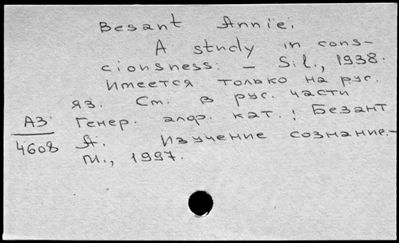 Besant Annie.
A study in cons-
ciousness. – S.l., 1938.
Имеется только на рус.
яз. См. в рус. части
АЗ Генер. алф. кат.: Безант
4608 А. Изучение сознание.–
М., 1997.